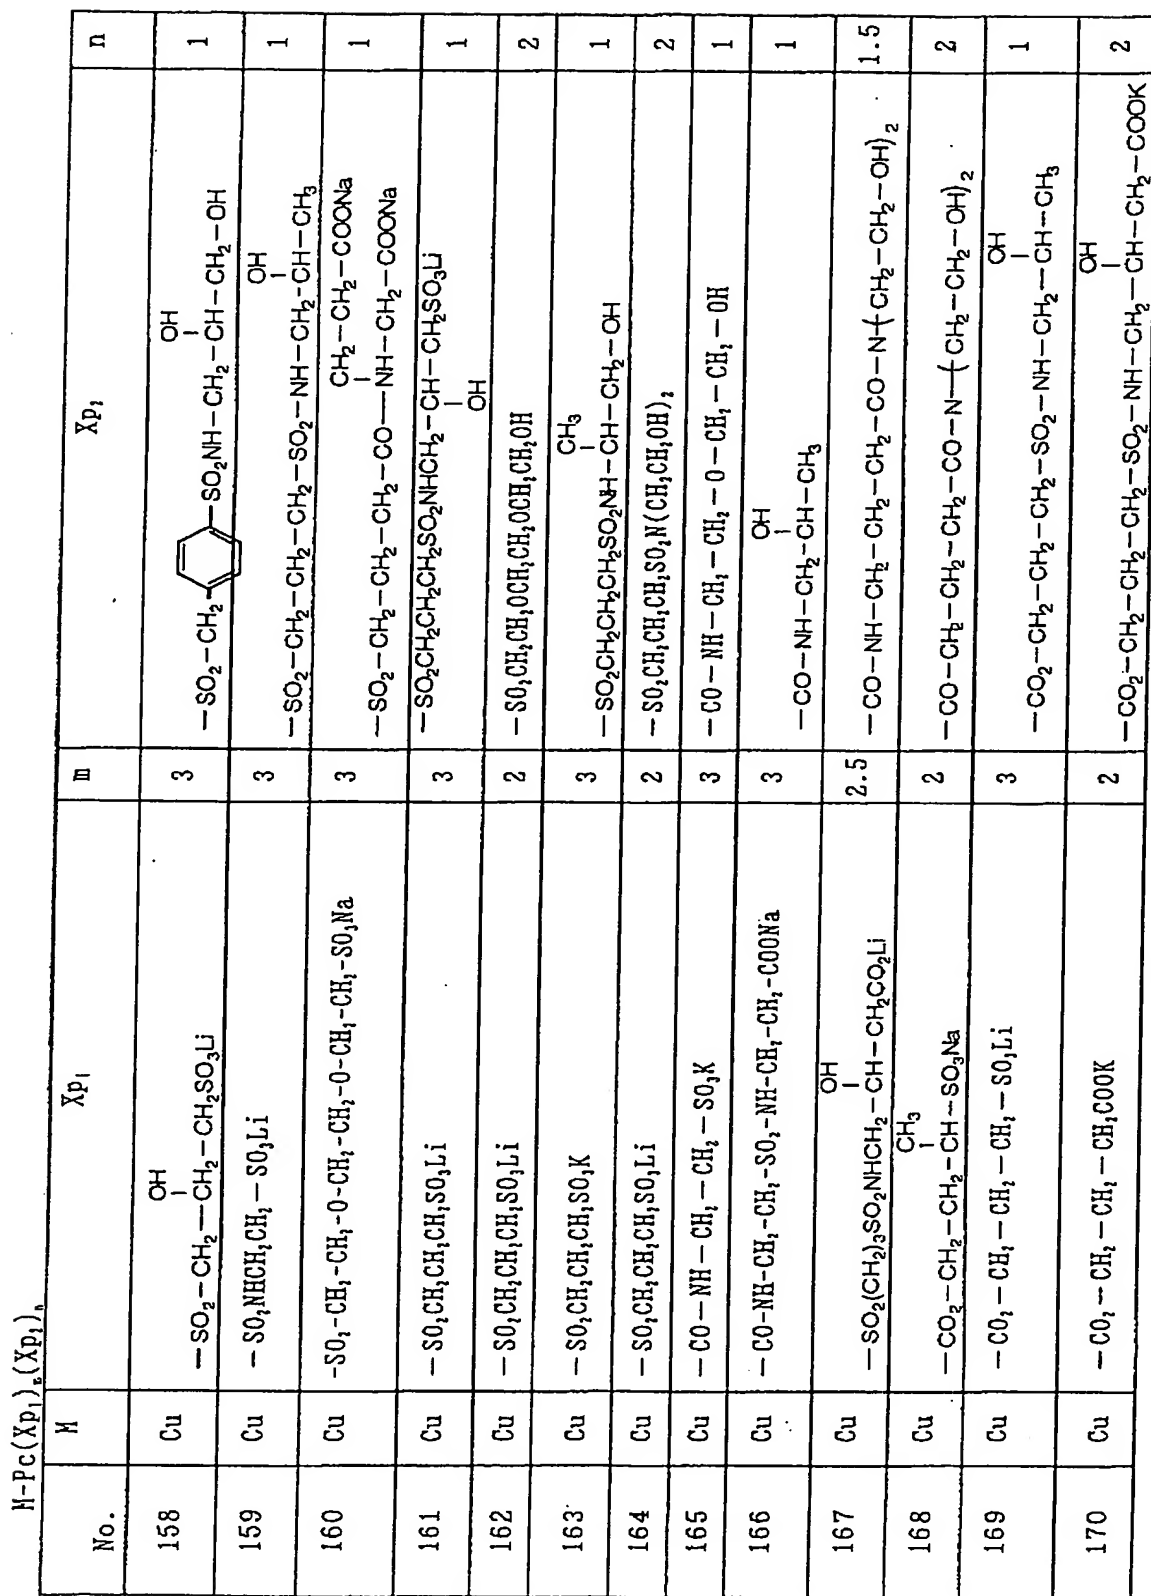 M-Pc(Xp₁)ₘ(Xp₂)ₙ
No. M Xp₁ m Xp₂ n
158 Cu —SO₂—CH₂—CH₂—CH₂SO₃Li 3 —SO₂—CH₂— —SO₂NH—CH₂—CH—CH₂—OH 1
OH OH
159 Cu —SO₂NHCH₂CH₂—SO₃Li 3 —SO₂—CH₂—CH₂—CH₂—SO₂—NH—CH₂—CH—CH₃ 1
OH
160 Cu -SO₂-CH₂-CH₂-O-CH₂-CH₂-O-CH₂-CH₂-SO₃Na 3 —SO₂—CH₂—CH₂—CH₂—CO—NH—CH₂—COONa 1
CH₂—CH₂—COONa
161 Cu —SO₂CH₂CH₂CH₂SO₃Li 3 —SO₂CH₂CH₂CH₂SO₂NHCH₂—CH—CH₂SO₃Li 1
OH
162 Cu —SO₂CH₂CH₂CH₂SO₃Li 2 —SO₂CH₂CH₂OCH₂CH₂OCH₂CH₂OH 2
163 Cu —SO₂CH₂CH₂CH₂SO₃K 3 —SO₂CH₂CH₂CH₂SO₂NH—CH—CH₂—OH 1
CH₃
164 Cu —SO₂CH₂CH₂CH₂SO₃Li 2 —SO₂CH₂CH₂CH₂SO₂N(CH₂CH₂OH)₂ 2
165 Cu —CO—NH—CH₂—CH₂—SO₃K 3 —CO—NH—CH₂—CH₂—O—CH₂—CH₂—OH 1
166 Cu —CO-NH-CH₂-CH₂-SO₂-NH-CH₂-CH₂-COONa 3 —CO—NH—CH₂—CH—CH₃ 1
OH
167 Cu —SO₂(CH₂)₃SO₂NHCH₂—CH—CH₂CO₂Li 2.5 —CO—NH—CH₂—CH₂—CH₂—CO—N(CH₂—CH₂—OH)₂ 1.5
OH
168 Cu —CO₂—CH₂—CH₂—CH—SO₃Na 2 —CO—CH₂—CH₂—CH₂—CO—N(CH₂—CH₂—OH)₂ 2
CH₃
169 Cu —CO₂—CH₂—CH₂—CH₂—SO₃Li 3 —CO₂—CH₂—CH₂—CH₂—SO₂—NH—CH₂—CH—CH₃ 1
OH
170 Cu —CO₂—CH₂—CH₂—CH₂COOK 2 —CO₂—CH₂—CH₂—CH₂—SO₂—NH—CH₂—CH—CH₂—COOK 2
OH